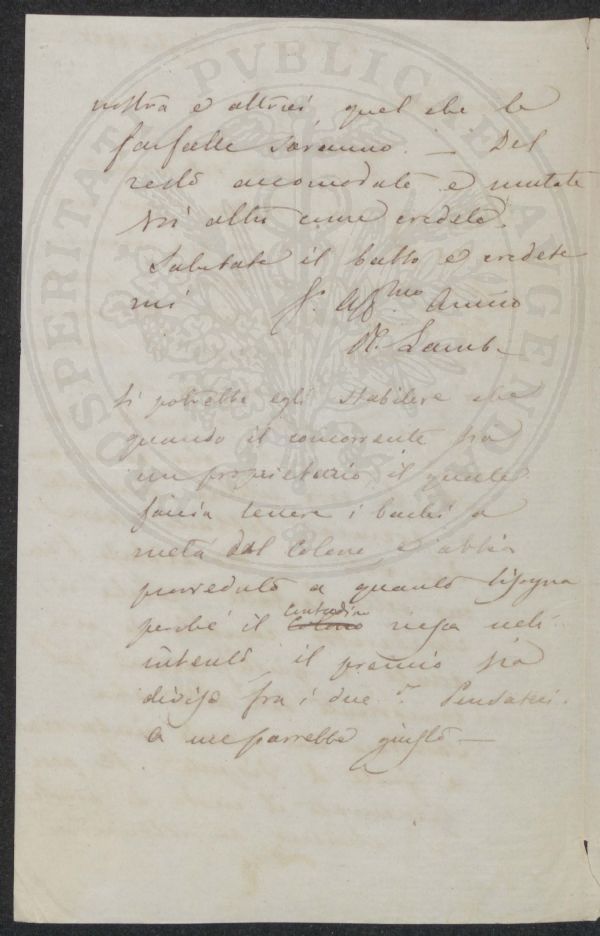 nostra e altrui, quel che le
farfalle saranno. — Del
resto accomodate e mutate
voi altri come credete.
Salutate il babbo e credete
mi
Affmo Amico
R. Lamb.
Si potrebbe egli stabilire che
quando il concorrente sia
un proprietario il quale
faccia tenere i bachi a
metà dal Colono e abbia
provveduto a quanto bisogna
perché il Colono contadino riesca nell'
intento, il premio sia
diviso fra i due? Pensateci.
A me parrebbe giusto —
PROSPERITATI PVBLICAE AVGENDAE